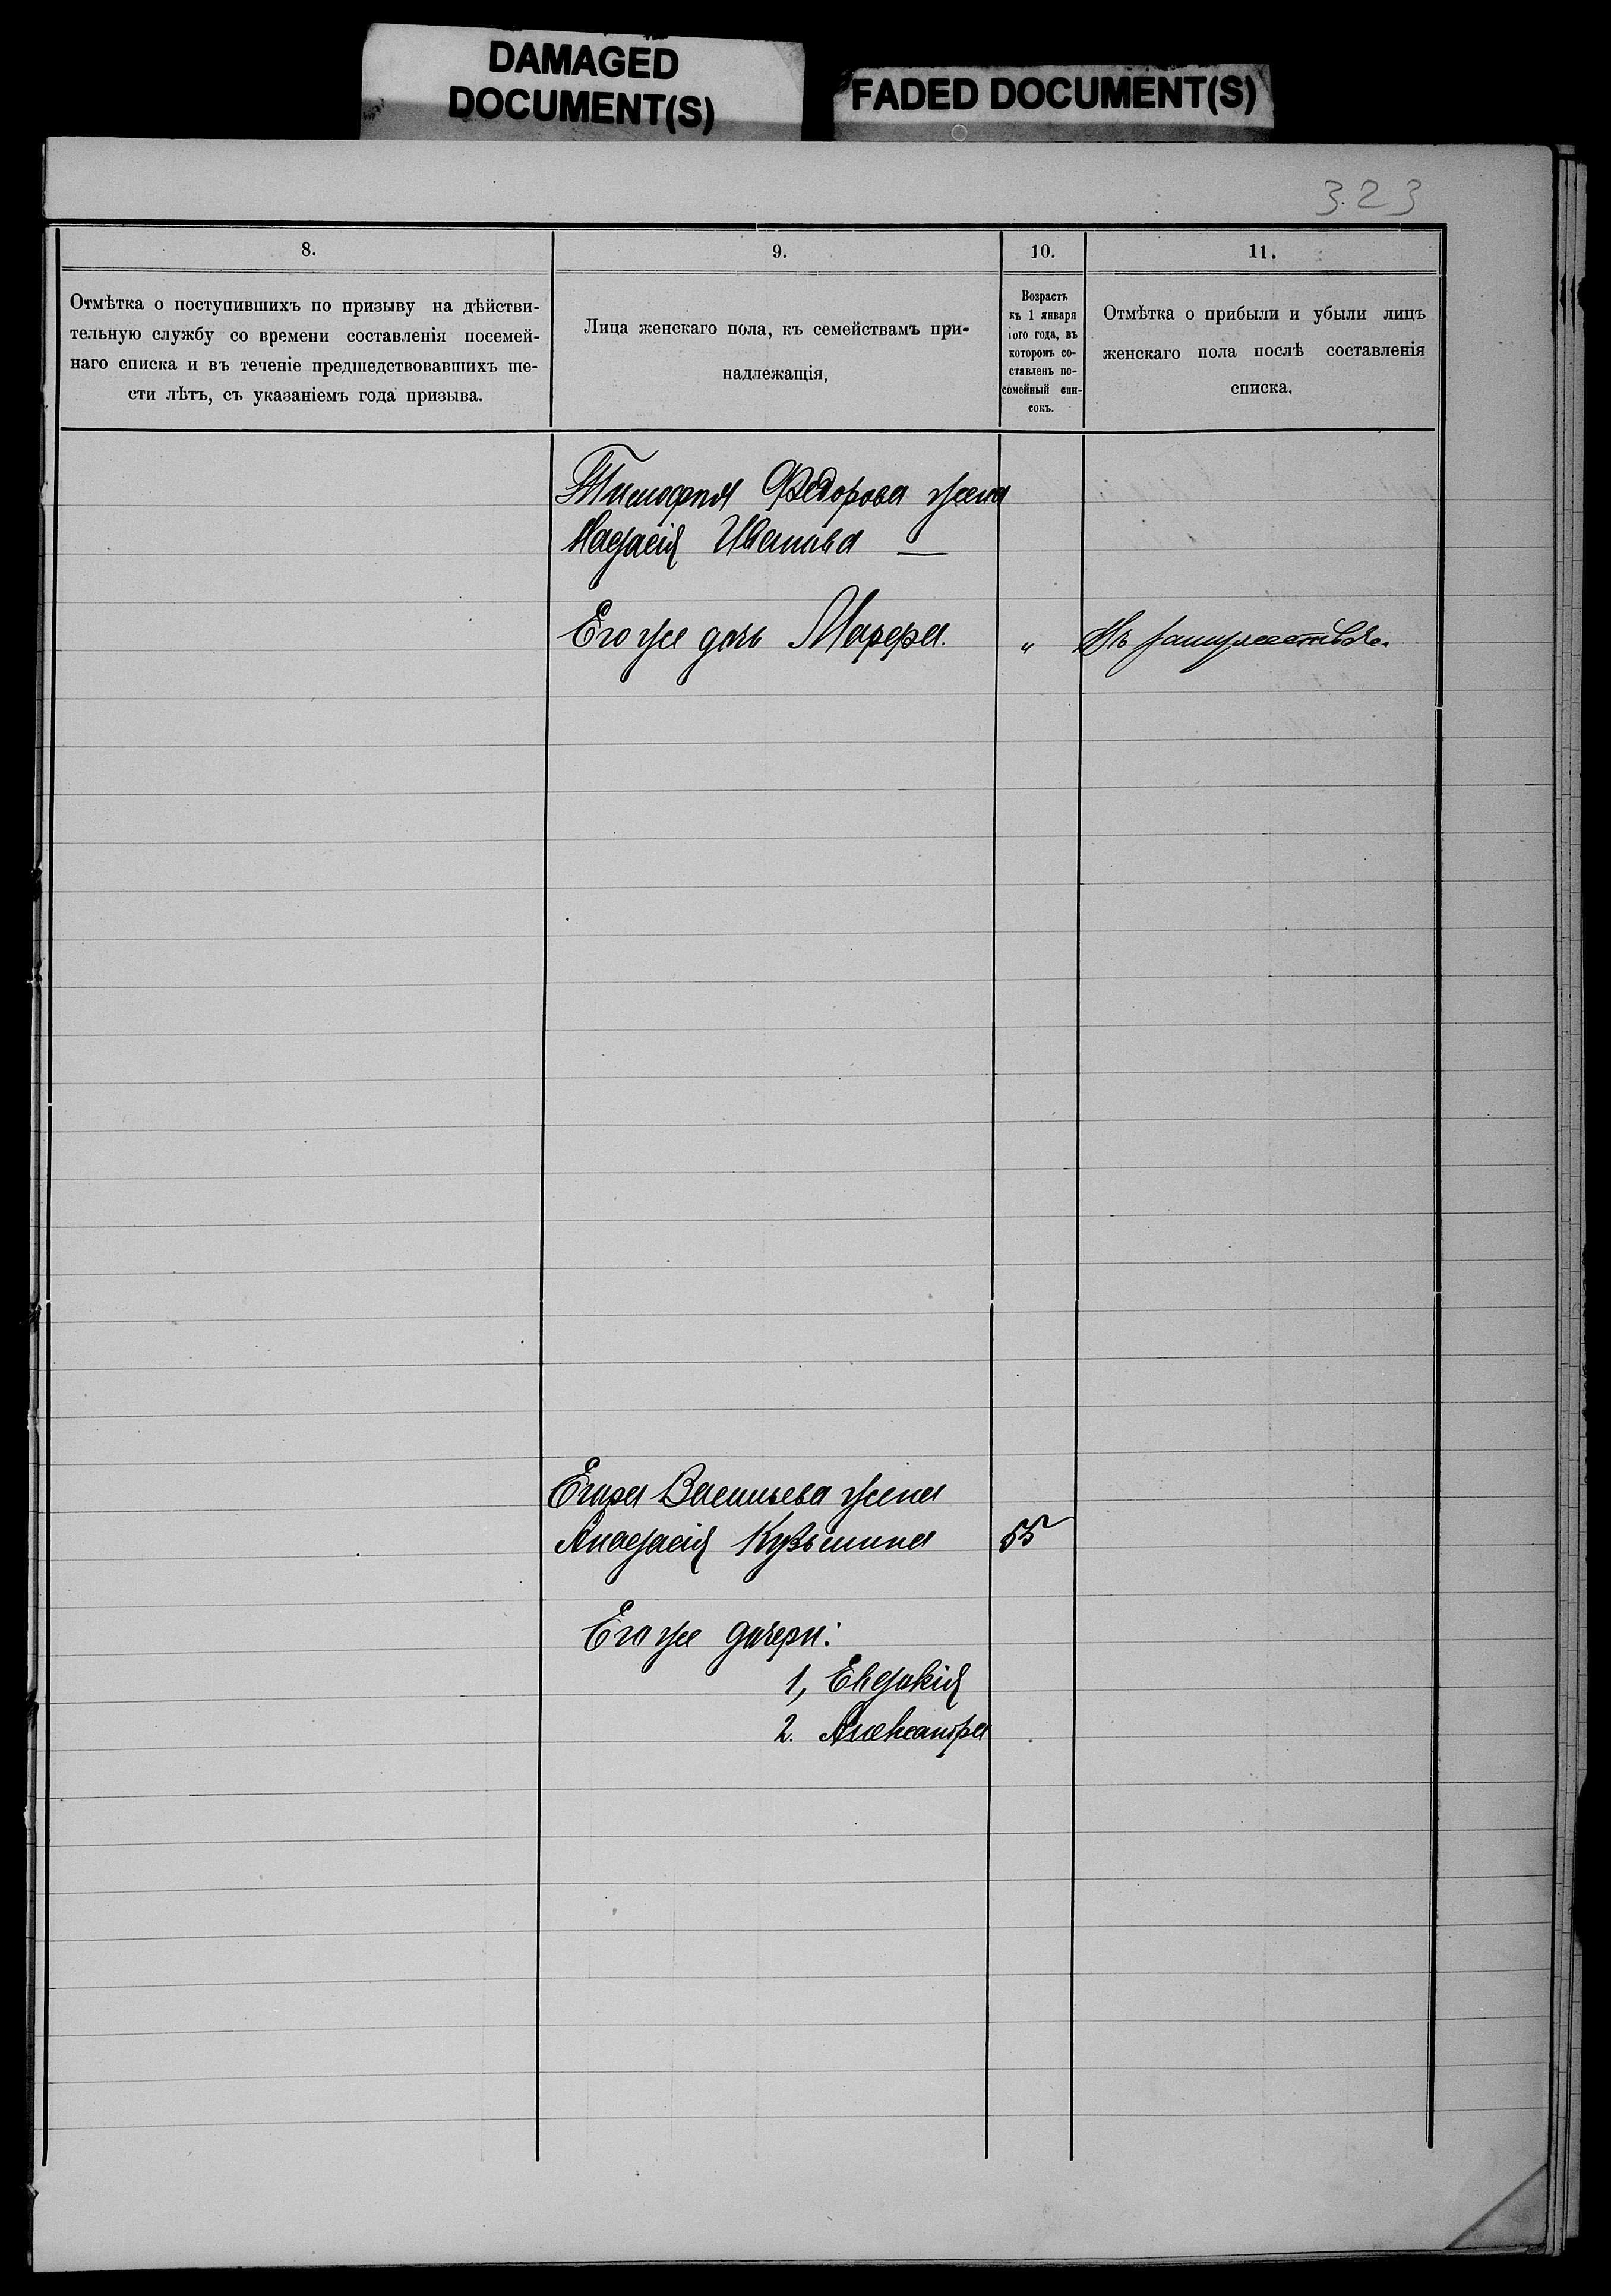 DAMAGED
DOCUMENT(S)
FADED DOCUMENT(S)
323
8.
9.
10.
11.
Отмѣтка о поступившихъ по призыву на дѣйстви-
тельную службу со времени составленія посемей-
наго списка и въ теченіе предшедствовавшихъ ше-
сти лѣтъ, съ указаніемъ года призыва.
Лица женскаго пола, къ семействамъ при-
надлежащія,
Возрастъ
къ 1 января
іого года, въ
которомъ со-
ставленъ по-
семейный спи-
сокъ.
Отмѣтка о прибыли и убыли лицъ
женскаго пола послѣ составленія
списка.
Тимофея Федорова жена
Иванова —
Его же дочь Марфа. " Въ замужествѣ.
Егора Васильева жена
Анастасія Кузьмина 55
Его же дочери:
1, Евдокія
2. Александра